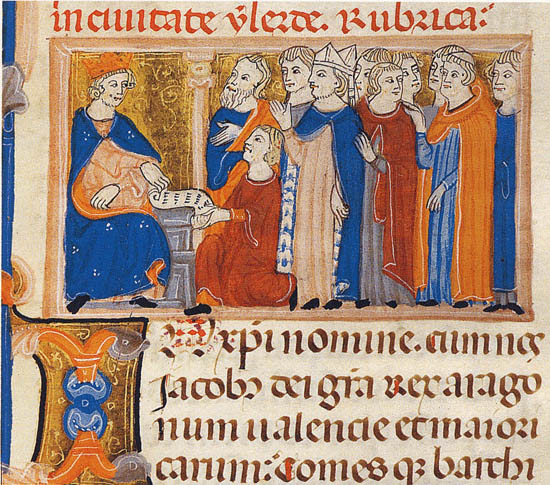 in ciuitate ylerde. Rubrica:
IN xpi nomine. cum nos
Jacobꝰ dei gr̄a rex arago
num ualencie et maiori
carum: Comes qꝫ barchi